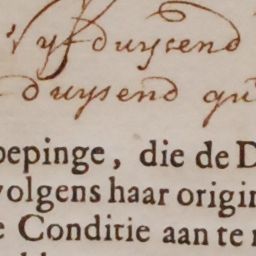 Vyfduysend
duysend gu
oepinge, die de D
volgens haar origin
e Conditie aan te